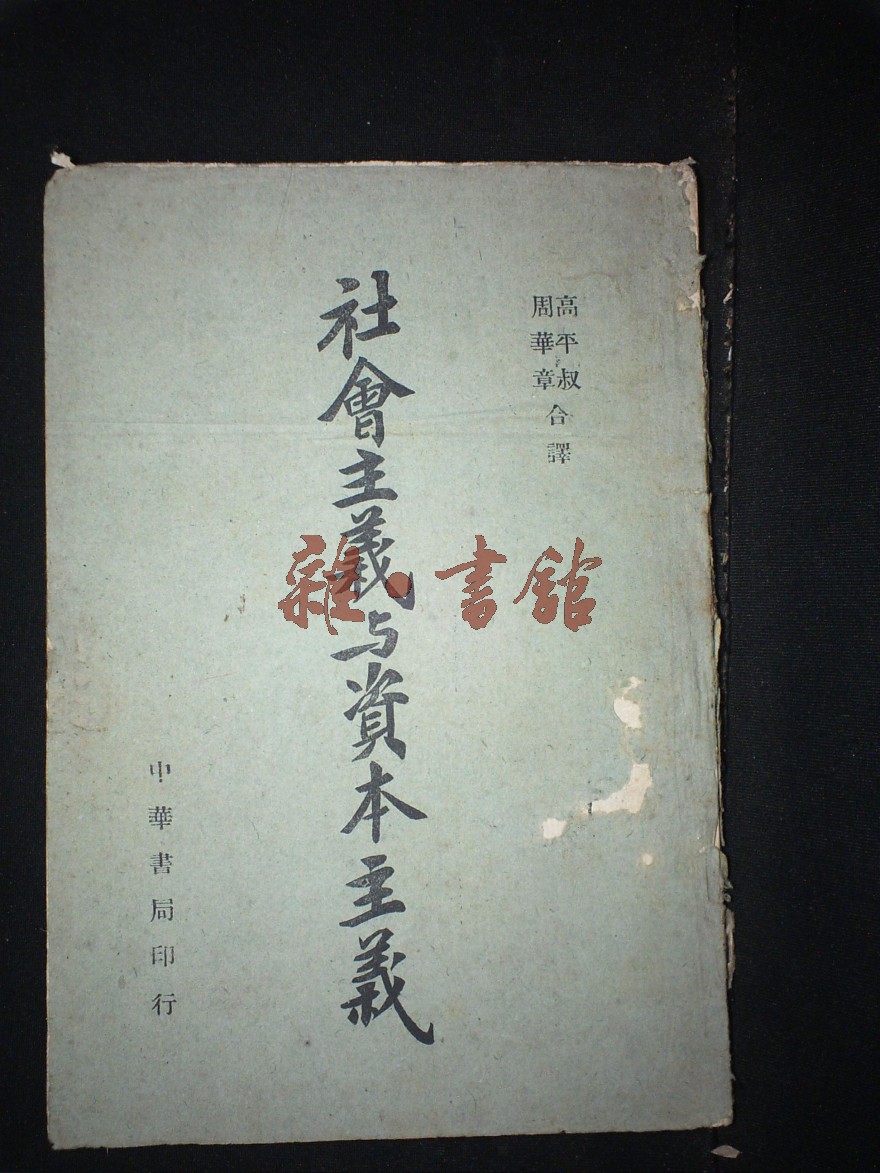 高平叔
周華章
合譯
社會主義与資本主義
中華書局印行
雜·書館